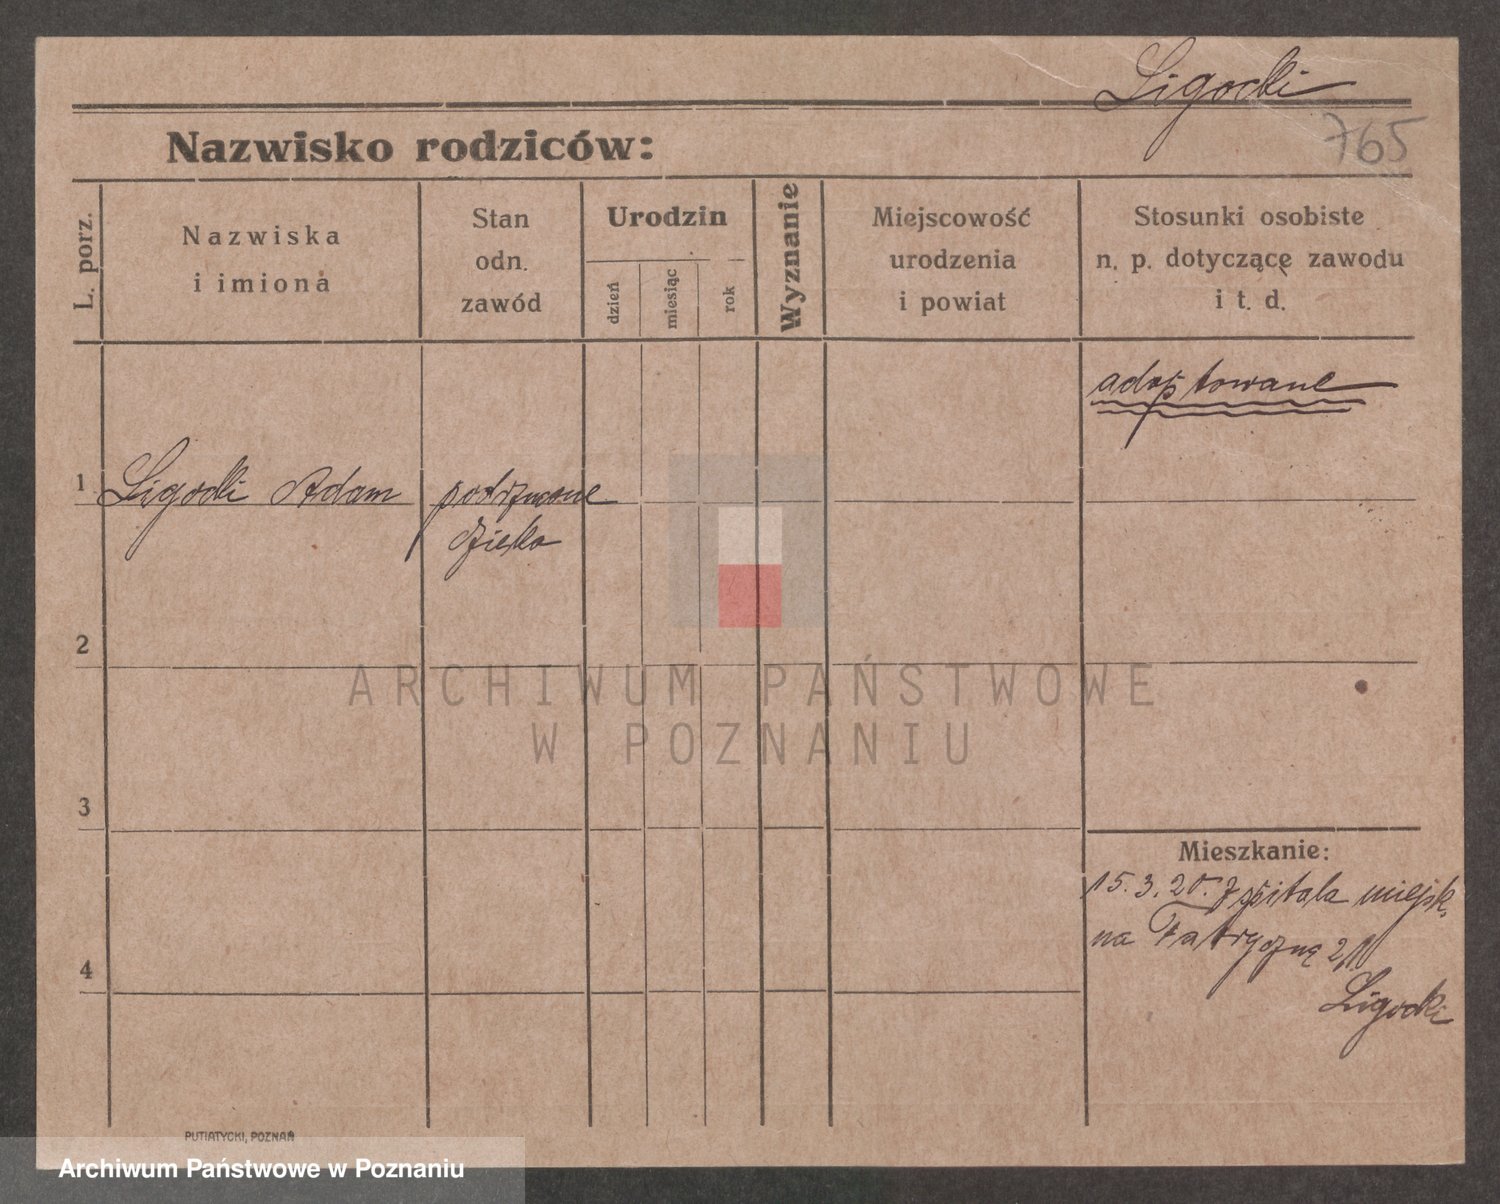 Ligocki
765
Nazwisko rodziców:
L. porz.
Nazwiska
i imiona
Stan
odn.
zawód
Urodzin
dzień
miesiąc
rok
Wyznanie
Miejscowość
urodzenia
i powiat
Stosunki osobiste
n. p. dotyczącę zawodu
i t. d.
adoptowane
1
Ligocki Adam
podrzucone
dziecko
2
ARCHIWUM PAŃSTWOWE
W POZNANIU
3
Mieszkanie:
15. 3. 20. szpitala miejsk.
na Fabryczną
Ligocki
4
PUTIATYCKI, POZNAŃ
Archiwum Państwowe w Poznaniu